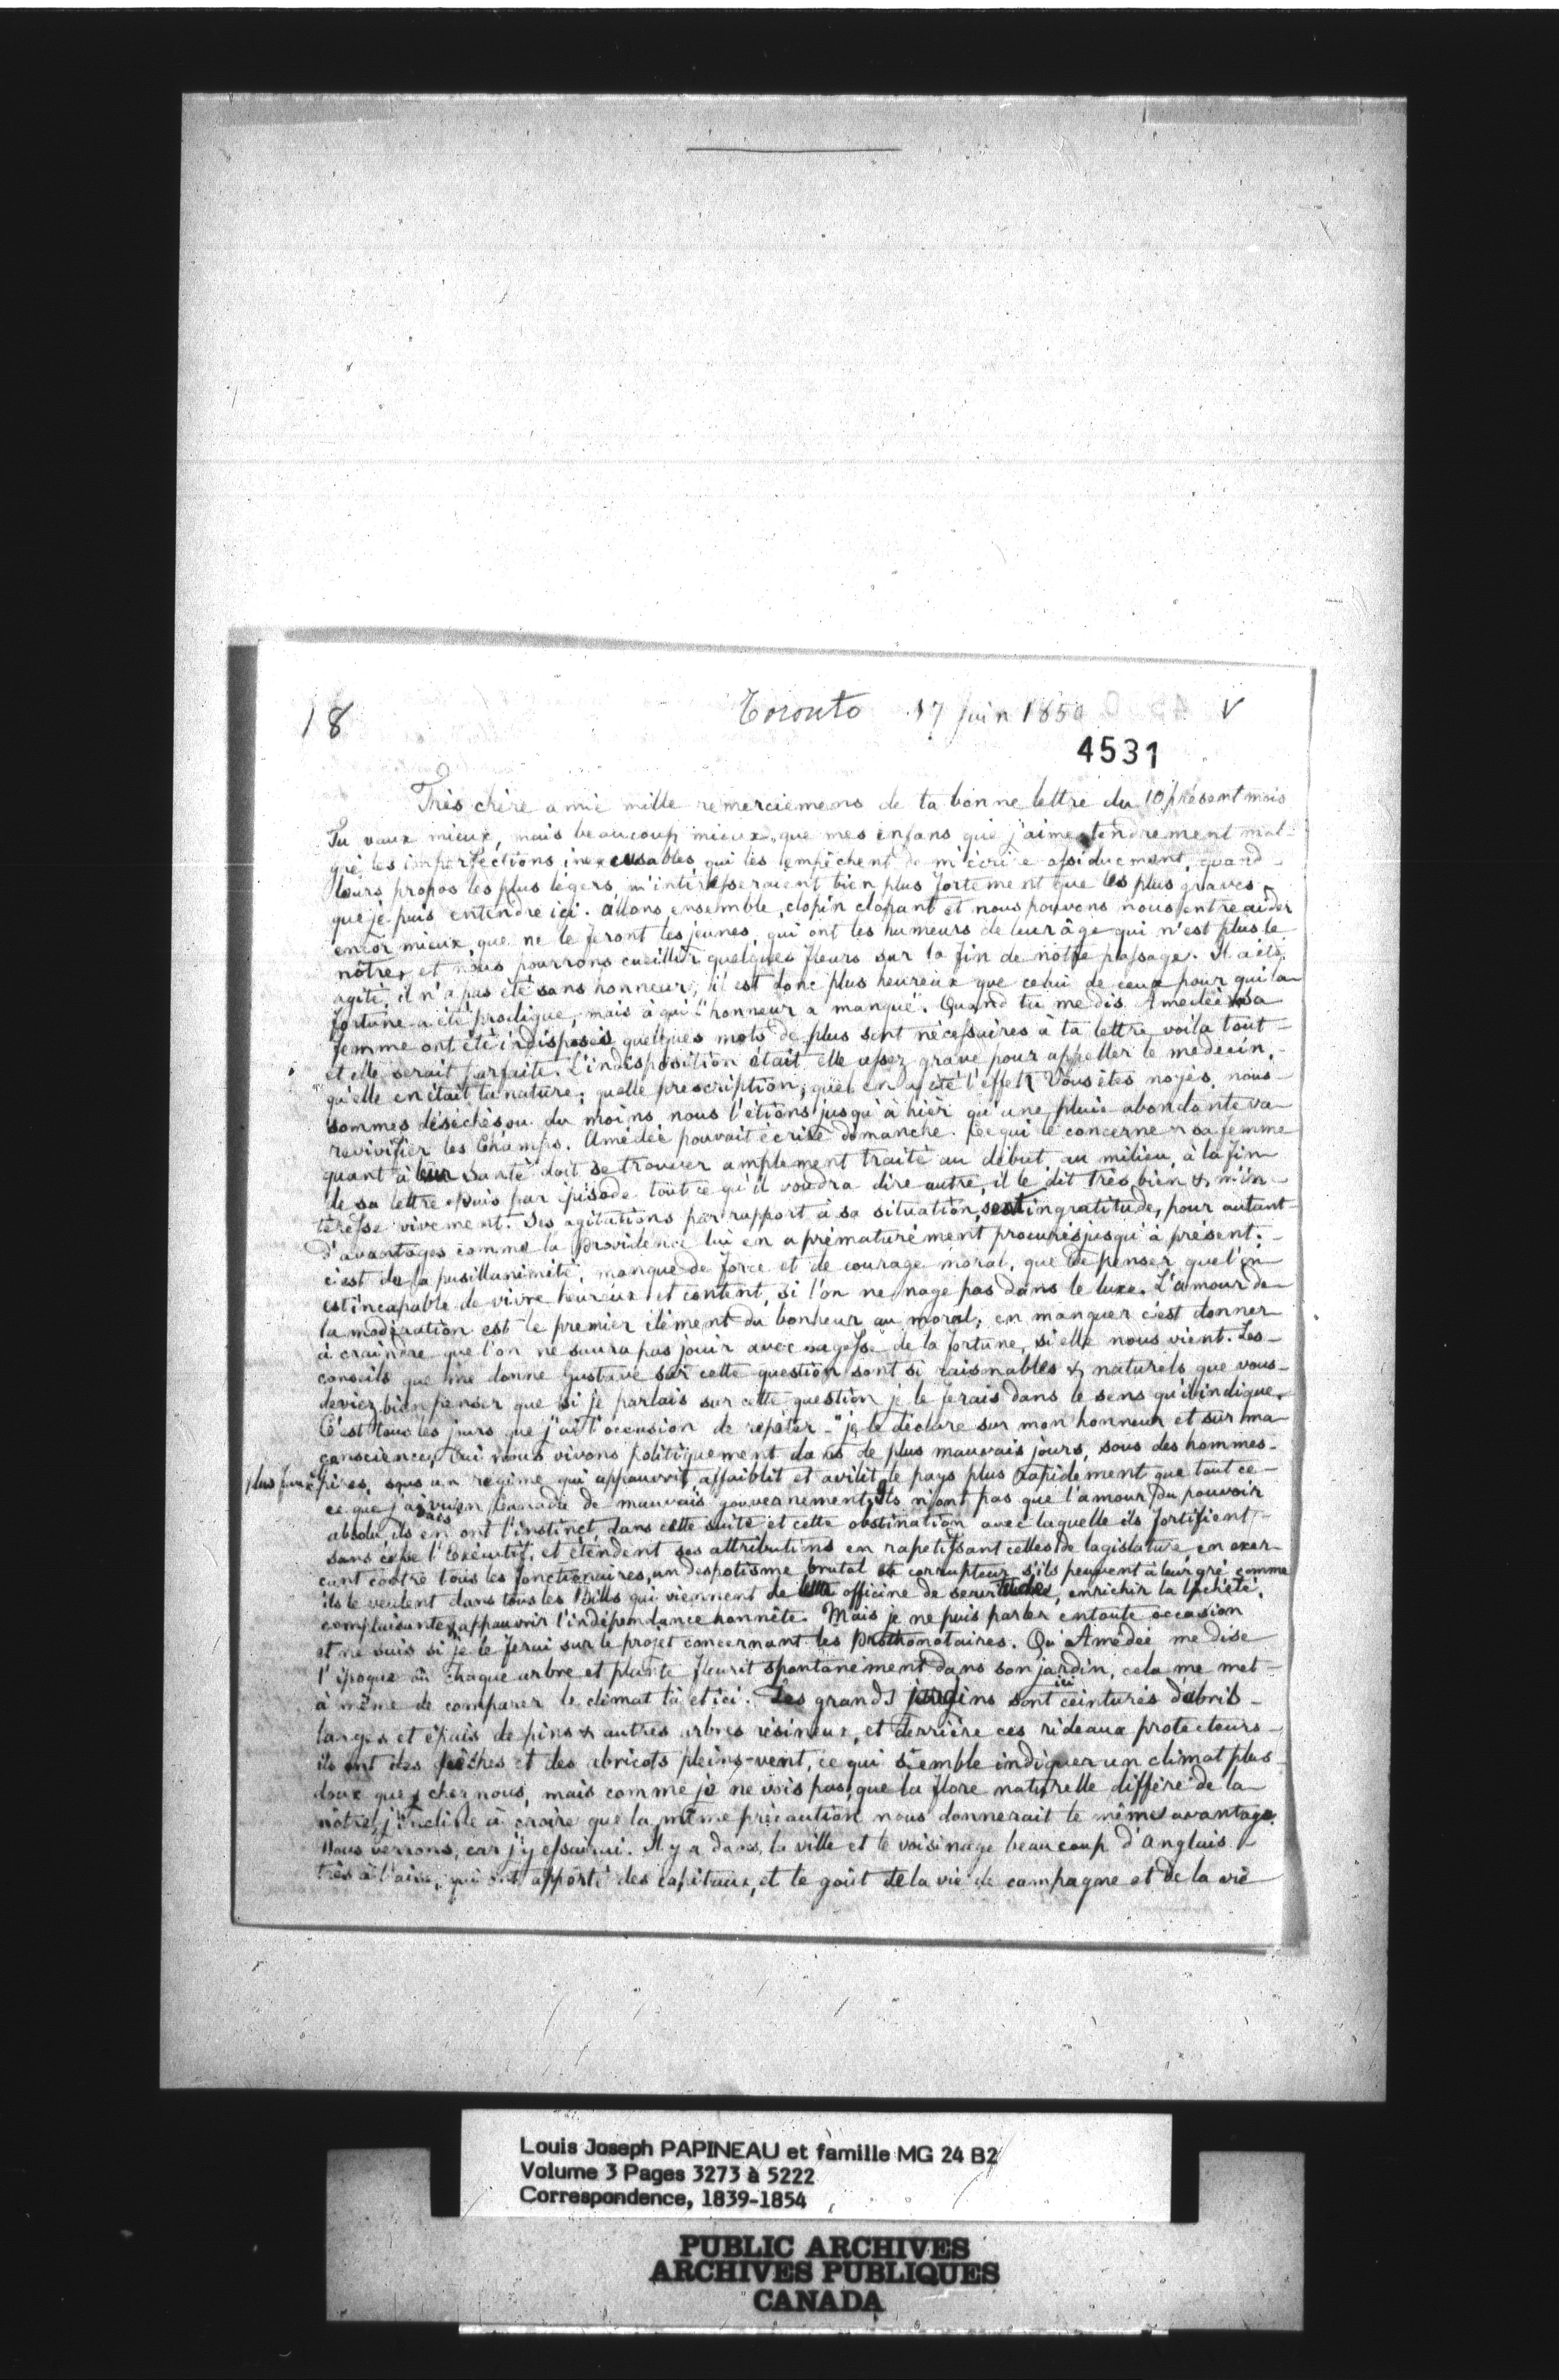 18 Toronto 17 Juin 1850 V
4531
Très chère amie mille remerciemens de ta bonne lettre du 10 présent mois
Tu vaux mieux, mais beaucoup mieux, que mes enfans que j'aime tendrement mal-
gré les imperfections inexcusables qui les empêchent de m'écrire assiduement, quand
leurs propos les plus légers m'intéresseraient bien plus fortement que les plus graves
que je puis entendre ici. Allons ensemble, clopin clopant et nous pouvons nous entreaider
encor mieux, que ne le feront les jeunes, qui ont les humeurs de leur âge qui n'est plus le
nôtre, et nous pourrons cueillir quelques fleurs sur la fin de notre passage. Il a été
agité, il n'a pas été sans honneur, il est donc plus heureux que celui de ceux pour qui la
fortune a été prodigue, mais à qui l'honneur a manqué. Quand tu me dis Amédée & sa
femme ont été indisposés quelques mots de plus sont nécessaires à ta lettre voila tout
et elle serait parfaite. L'indisposition était elle assez grave pour appeller le medecin,
qu'elle en était la nature, quelle prescription, quel en a été l'effet? Vous êtes noyés, nous
sommes déséchés ou du moins nous l'étions jusqu'à hier qu'une pluie abondante va
revivifier les Champs. Amédée pouvait écrire dimanche. Ce qui le concerne & sa femme
quant à leur santé doit se trouver amplement traité au début, au milieu, à la fin
de sa lettre puis par épisode tout ce qu'il voudra dire autre, il le dit très bien & m'in-
téresse vivement. Ses agitations par rapport à sa situation, sont ingratitude, pour autant
d'avantages comme la Providence lui en a prématurément procurés jusqu'à présent.
c'est de la pusillanimité, manque de force et de courage moral, que de penser que l'on
est incapable de vivre heureux et content, si l'on ne nage pas dans le luxe. L'amour de
la modération est le premier élément du bonheur au moral, en manquer c'est donner
à craindre que l'on ne saura pas jouir avec sagesse de la fortune, si elle nous vient. Les
conseils que me donne Gustave sur cette question sont si raisonables & naturels que vous
deviez bien penser que si je parlais sur cette question je le ferais dans le sens qu'il indique.
C'est tous les jours que j'ai l'occasion de répéter - "je le déclare sur mon honneur et sur ma
conscience, oui nous vivons politiquement dans de plus mauvais jours, sous des hommes
pires, sous un régime qui appauvrit affaiblit et avilit le pays plus rapidement que tout ce
ce que j'ai vu en Canada de mauvais gouvernement. Ils n'ont pas que l'amour du pouvoir
absolu ils en ont l'instinct, dans cette suite et cette obstination avec laquelle ils fortifient
sans cesse l'exécutif, et étendent ses attributions en rapetissant celles de lagislature, en exer-
cant contre tous les fonctionaires, un despotisme brutal et corrupteur, s'ils peuvent à leur gré comme
ils le veulent dans tous les Bills qui viennent de cette officine de enrichir la lâcheté
complaisante & appauvrir l'indépendance honnête. Mais je ne puis parler en toute occasion
et ne sais si je le ferai sur le projet concernant les Prothonotaires. Qu'Amédée me dise
l'époque où chaque arbre et plante fleurit spontanément dans son jardin, cela me met
à même de comparer le climat là et ici. Les grands jardins ici sont ceinturés d'abris
larges et épais de pins & autres arbres résineux, et derrière ces rideaux protecteurs
ils ont des pêches et des abricots pleins-vent, ce qui semble indiquer un climat plus
doux que chez nous, mais comme je ne vois pas, que la flore naturelle diffère de la
nôtre, j'incline à croire que la même précaution nous donnerait le même avantage.
Nous verrons, car j'y essaierai. Il y a dans la ville et le voisinage beaucoup d'Anglais
très à l'aise, qui ont apporté des capitaux, et le goût de la vie de campagne et de la vie
Louis Joseph PAPINEAU et famille MG 24 B2
Volume 3 Pages 3273 à 5222
Correspondence, 1839-1854
PUBLIC ARCHIVES
ARCHIVES PUBLIQUES
CANADA